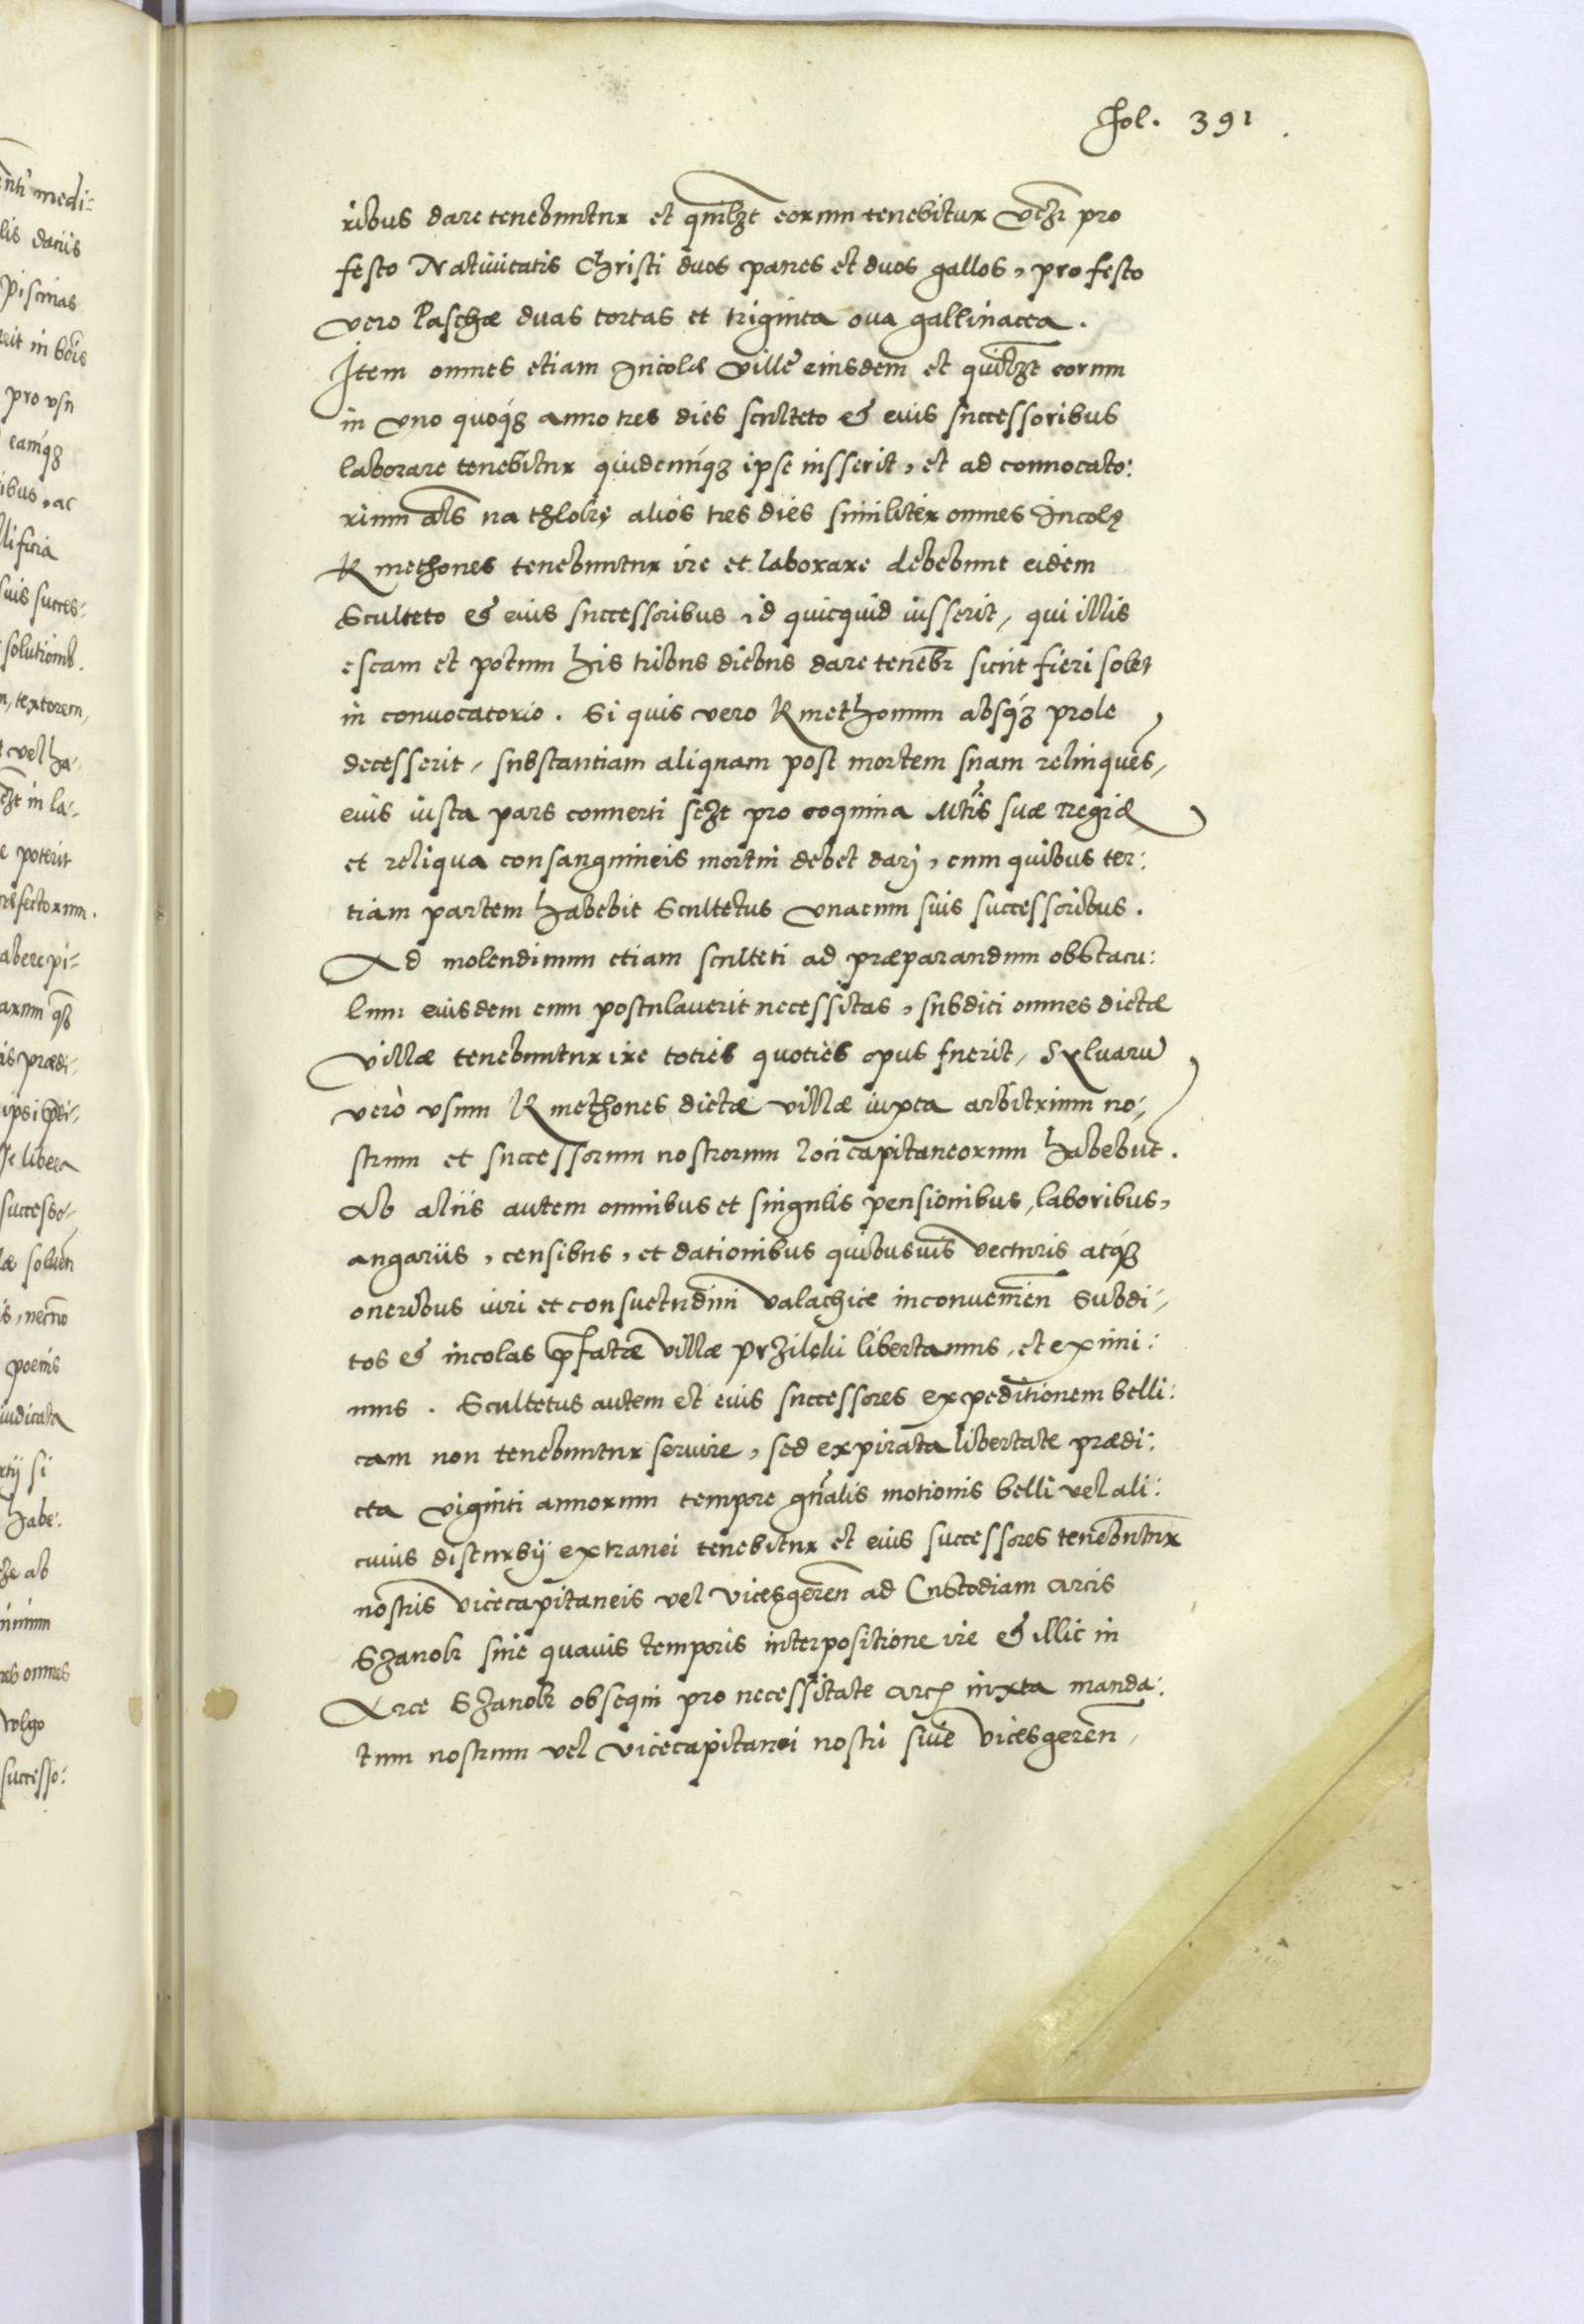 Fol. 391
ribus dare tenebuntur et quilibet eorum tenebitur vcz pro
festo Natiuitatis Christi duos panes et duos gallos, pro festo
vero Paschæ duas tortas et triginta oua gallinacea.
Item omnes etiam Incolæ villę eiusdem et quilibet eorum
in vno quoqȝ anno tres dies sculteto & eius successoribus
laborare tenebitur quidcunqȝ ipse iusserit, et ad conuocato:
rium als na thloki alios tres dies similiter omnes Incolę
Kmethones tenebuntur ire et laborare debebunt eidem
Sculteto & eius successoribus id quicquid iusserit, qui illis
escam et potum his tribus diebus dare tenebr sicut fieri solet
in conuocatorio. Si quis vero Kmethonum absqȝ prole
decesserit, substantiam aliquam post mortem suam relinquēs,
eius iusta pars conuerti pro coquina Mtis suæ Regiæ
et reliqua consanguineis mortui debet dari, cum quibus ter:
tiam partem habebit Scultetus vnacum suis successoribus.
Ad molendinum etiam sculteti ad præparandum obstacu:
lum eiusdem cum postulauerit necessitas, subditi omnes dictæ
villæ tenebuntur ire toties quoties opus fuerit, Syluarū
vero vsum Kmethones dictæ villæ iuxta arbitrium no:
strum et successorum nostrorum loci capitaneorum habebūt.
Ab aliis autem omnibus et singulis pensionibus, laboribus,
angariis, censibus, et dationibus quibusuis vecturis atqȝ
oneribus iuri et consuetudini Valachicæ inconuenien Subdi-
tos & incolas pfatæ villæ Przilęki libertamus, et eximi:
mus. Scultetus autem et eius successores expeditionem belli:
cam non tenebuntur seruire, sed expirata libertate prædi:
cta viginti annorum tempore gnalis motionis belli vel ali:
cuius disturbij extranei tenebitur et eius successores tenebuntur
nostris vicecapitaneis vel vicesgeren ad Custodiam arcis
Szanok sine quauis temporis interpositione ire & illic in
Arce Szanok obsequi pro necessitate arcis iuxta manda:
tum nostrum vel vicecapitanei nostri siue vicesgeren,